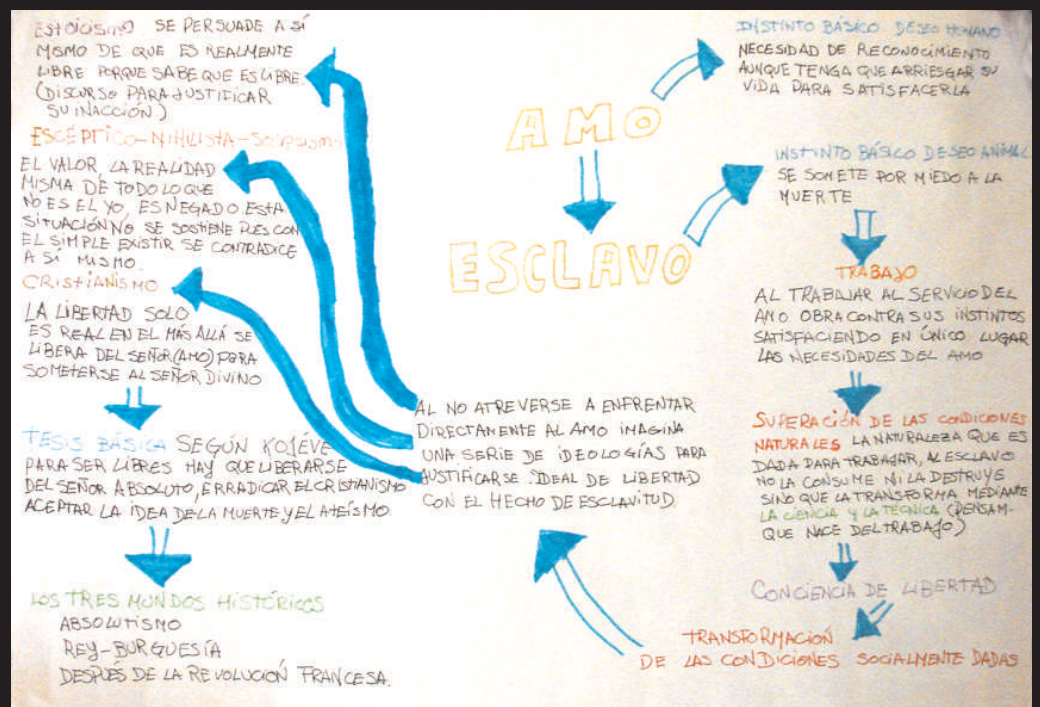 ESTOICISMO SE PERSUADE A SÍ
MISMO DE QUE ES REALMENTE
LIBRE PORQUE SABE QUE ES LIBRE.
(DISCURSO PARA JUSTIFICAR
SU INACCIÓN)
ESCÉPTICO-NIHILISTA-SOLIPSISMO
EL VALOR, LA REALIDAD
MISMA DE TODO LO QUE
NO ES EL YO, ES NEGADO. ESTA
SITUACIÓN NO SE SOSTIENE PUES CON
EL SIMPLE EXISTIR SE CONTRADICE
A SÍ MISMO.
CRISTIANISMO
LA LIBERTAD SOLO
ES REAL EN EL MÁS ALLÁ SE
LIBERA DEL SEÑOR (AMO) PARA
SOMETERSE AL SEÑOR DIVINO
TESIS BÁSICA SEGÚN KOJÉVE
PARA SER LIBRES HAY QUE LIBERARSE
DEL SEÑOR ABSOLUTO, ERRADICAR EL CRISTIANISMO
ACEPTAR LA IDEA DE LA MUERTE Y EL ATEÍSMO
LOS TRES MUNDOS HISTÓRICOS
ABSOLUTISMO
REY-BURGUESÍA
DESPUÉS DE LA REVOLUCIÓN FRANCESA.
AMO
ESCLAVO
AL NO ATREVERSE A ENFRENTAR
DIRECTAMENTE AL AMO IMAGINA
UNA SERIE DE IDEOLOGÍAS PARA
JUSTIFICARSE. IDEAL DE LIBERTAD
CON EL HECHO DE ESCLAVITUD.
INSTINTO BÁSICO DESEO HUMANO
NECESIDAD DE RECONOCIMIENTO
AUNQUE TENGA QUE ARRIESGAR SU
VIDA PARA SATISFACERLA
INSTINTO BÁSICO DESEO ANIMAL
SE SOMETE POR MIEDO A LA
MUERTE
TRABAJO
AL TRABAJAR AL SERVICIO DEL
AMO OBRA CONTRA SUS INSTINTOS
SATISFACIENDO EN ÚNICO LUGAR
LAS NECESIDADES DEL AMO
SUPERACIÓN DE LAS CONDICIONES
NATURALES LA NATURALEZA QUE ES
DADA PARA TRABAJAR, AL ESCLAVO
NO LA CONSUME NI LA DESTRUYE
SINO QUE LA TRANSFORMA MEDIANTE
LA CIENCIA Y LA TÉCNICA (PENSAM-
QUE NACE DEL TRABAJO)
CONCIENCIA DE LIBERTAD
TRANSFORMACIÓN
DE LAS CONDICIONES SOCIALMENTE DADAS